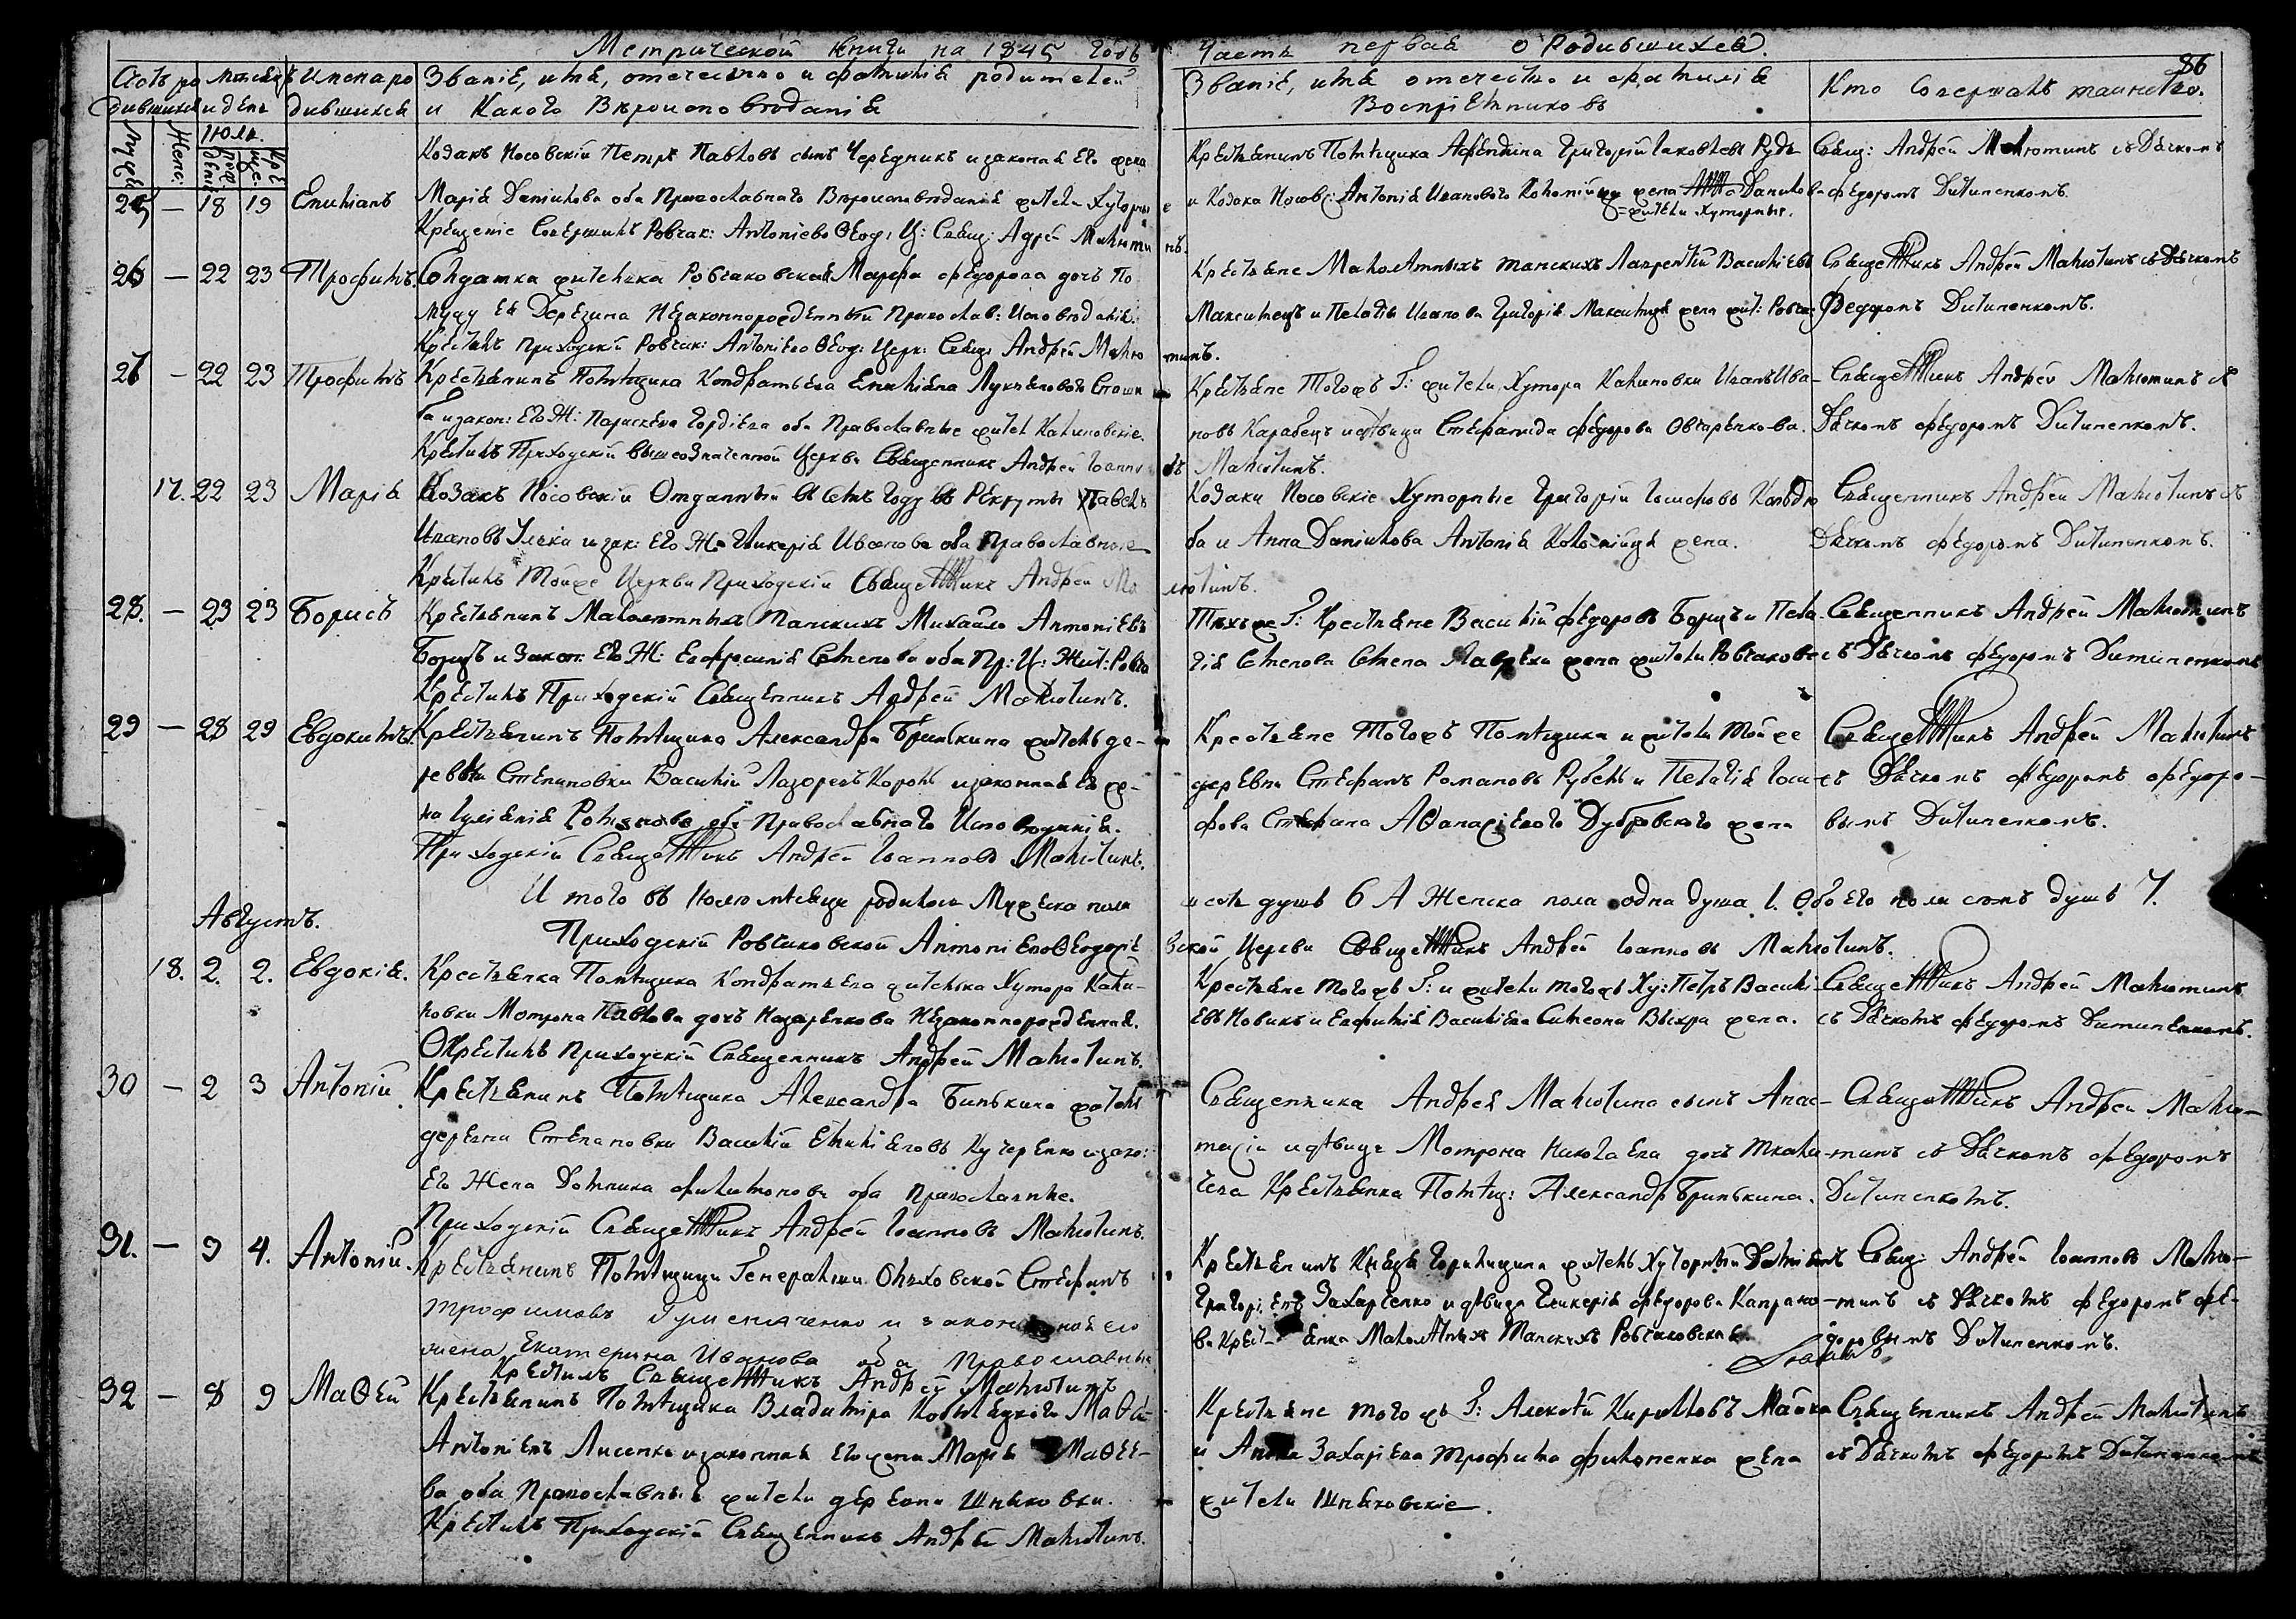 Метрической книги на 1845 годъ Часть первая о Родившихся.
86
Счетъ родившихся
Мѣсяцъ и день
Имена родившихся
Званіе, имя, отечество и фамилія родителей
и Какого Вѣроисповѣданія
Званіе, имя отечество и фамилія
Воспріемниковъ
Кто Совершалъ таинство.
Муж Женс: Июль.
Козакъ Носовскій Петръ Павловъ сынъ Чередникъ и законная Его жена
25 — 18 19 Емиліанъ Марія Даніилова оба Православнаго Вѣроисповѣданія жители Хуторные
Крещеніе Совершилъ Ровчак: Антоніево Ѳеод: Ц: Свящ: Адрей Малютинъ.
Крестьянинъ Помѣщика Афендика Григорій Іаковлевъ Рудь
и Козака Носовс: Антонія Иванового Коломійца жена Данилова
жители Хуторные.
Свящ: Андрей Малютинъ съ Дячкомъ
Федоромъ Дитиненкомъ.
26 — 22 23 Трофимъ. Солдатка жителька Ровчаковская Марфа Федорова дочь По
мужу Ея Дерезина Незаконнорожденный Православ: Исповѣданія.
Крестилъ приходскій Ровчак: Антоніево Ѳеод: Церк: Свящ: Андрей Малютинъ.
Крестьяне Малолѣтныхъ Танскихъ Лаврентій Василіевъ
Максимецъ и Пелагія Иванова Григорія Максимца жена жит: Ровчак
Священникъ Андрей Малютинъ съ Дячкомъ
Федоромъ Дитиненкомъ.
27 — 22 23 Трофимъ Крестьянинъ Помѣщика Кондратьева Емиліана Лукьянового
и закон: Его Ж: Параскева Гордіева оба Православные жител Калиновскіе.
Крестилъ Приходскій вышеозначенной Церкви Священникъ Андрей Іоанновъ Малютинъ.
Крестьяне Тогожъ Г: жители Хутора Калиновки Иванъ Ива-
новъ Карабецъ и дѣвица Стефанида Федорова Овчаренкова.
Священникъ Андрей Малютинъ съ
Дячкомъ Федоромъ Дитиненкомъ.
17. 22 23 Марія Козакъ Носовскій Отданный въ семъ году въ Рекруты Павелъ
Ивановъ Улека и зак: Его Ж. Гликерія Иванова оба Православные
Крестилъ Тойже Церкви Приходскій Священникъ Андрей Малютинъ.
Козаки Носовскіе Хуторные Григорій Іосифовъ
ба и Анна Даніилова Антонія Коломійца жена.
Священникъ Андрей Малютинъ съ
Дячкомъ Федоромъ Дитиненкомъ.
28. — 23 23 Борисъ Крестьянинъ Малолѣтныхъ Танскихъ Михайло Антоніевъ
Борщъ и Закон: Его Ж: Евфросинія Семенова оба Пр: И: Жит: Ровча
Крестилъ Приходскій Священникъ Андрей Малютинъ.
Тѣхъже Г: Крестьяне Василій Федоровъ Борщъ и Пела-
гія Семенова Семена Лаврѣка жена жители Ровчаковс
Священникъ Андрей Малютинъ
съ Дячкомъ Федоромъ Дитиненкомъ
29 — 28 29 Евдокимъ. Крестьянинъ Помѣщика Александра Бринкина житель де-
ревни Степановки Василій Лазоревъ Король и законная Его же-
на Іуліанія Романова оба Православнаго Исповѣданія.
Приходскій Священникъ Андрей Іоанновъ Малютинъ.
Крестьяне Тогожъ Помѣщика и жители Тойже
деревни Стефанъ Романовъ Рубель и Пелагія Іоси-
фова Стефана Аѳанасіевого Дубровского жена
Священникъ Андрей Малютинъ
съ Дячкомъ Федоромъ Федоро-
вымъ Дитиненкомъ.
И того въ Іюлѣ мѣсяцѣ родилось Мужеска пола шесть душъ 6 А Женска пола одна душа 1. Обоего пола семъ душъ 7.
Приходскій Ровчаковской Антоніево Ѳеодосіевской Церкви Священникъ Андрей Іоанновъ Малютинъ.
Августъ.
18. 2. 2. Евдокія. Крестьянка Помѣщика Кондратьева жителька Хутора Кали-
новки Мотрона Павлова дочь Назаренкова Незаконнорожденная.
Окрестилъ Приходскій Священникъ Андрей Малютинъ.
Крестьяне тогожъ Г: и жители тогожъ Ху: Петръ Василі-
евъ Новикъ и Евфимія Василіева Симеона Выхра жена.
Священникъ Андрей Малютинъ
съ Дячкомъ Федоромъ Дитиненкомъ.
30 — 2 3 Антоній. Крестьянинъ Помѣщика Александра Бинькина житель
деревни Степановки Василій Емиліановъ Кучеренко и зако:
Его Жена Домника Филимонова оба Православные.
Приходскій Священникъ Андрей Іоанновъ Малютинъ.
Священника Андрея Малютина сынъ Анас-
тасій и дѣвица Мотрона Николаева дочь Ткали-
чева Крестьянка Помѣщ: Александр Бринькина.
Священникъ Андрей Малю-
тинъ съ Дячкомъ Федоромъ
Дитиненкомъ.
31. — 3 4. Антоній. Крестьянинъ Помѣщицы Генеральши Ольховской Стефанъ
Трофимовъ и законная его
жена Екатерина Иванова оба православные
Крестилъ Священникъ Андрей Малютинъ
Крестьянинъ Князя Горчакова житель Хуторный
Григоріевъ Захарченко и дѣвица Гликерія Федорова
ва Крестьянка Малолѣтныхъ Танскихъ Ровчаковская.
Свящ: Андрей Іоанновъ Малю-
тинъ съ Дячкомъ Федоромъ Фе-
доровымъ Дитиненкомъ.
32 — 8 9 Маѳей Крестьянинъ Помѣщика Владиміра Маѳей
Антоніевъ Лисенко и законная Его жена Марія Маѳее-
ва оба Православныя жители деревни Шняковки.
Крестилъ Приходскій Священникъ Андрей Малютинъ.
Крестьяне тогожъ Г: Алексѣй Кирилловъ
и Анна Захаріева Трофима Филоненка жена
жители Шняковскіе.
Священникъ Андрей Малютинъ
съ Дячкомъ Федоромъ Дитиненкомъ